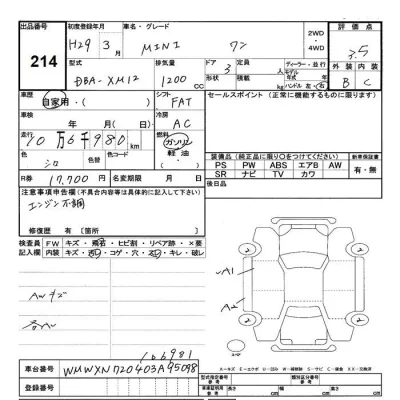 出品番号 初度登録年月 車名・グレード 2WD・4WD 評価点
214 H29 3月 MINI ワン 3.5
型式 排気量 ドア 形状 定員 積載 ディーラー・並行 モデル 年 ハンドル 左・右 外装 内装
DBA-XM12 1200 CC 3 人 kg B C
車歴 自家用・( ) シフト FAT セールスポイント（正常に機能するものに限ります）
車検 年 月 冷房 AC
走行 10万6千980 燃料 ガソリン 軽油・
色 シロ 色替 色コード
装備品（純正品に限り○をつけてください） 新車保証書
PS PW ABS エアB AW 有・無
SR ナビ TV カワ
R券 17,700円 名変期限 月 日 後日品
注意事項申告欄（不具合内容等は具体的に記入して下さい）
エンジン不調
修復歴 有（ ）箇所
検査員記入欄 FW キズ・飛石・ヒビ割・リペア跡・×要
内装 キズ・汚レ・コゲ・穴・スレ・キレ・破レ
A1
A2
AWキズ
各AU
106981
車台番号 WMWXN720403A95098
登録番号
A－キズ E－エクボ
型式指定番号 類別区分番号
参考 長さ cm 幅 cm 高さ cm